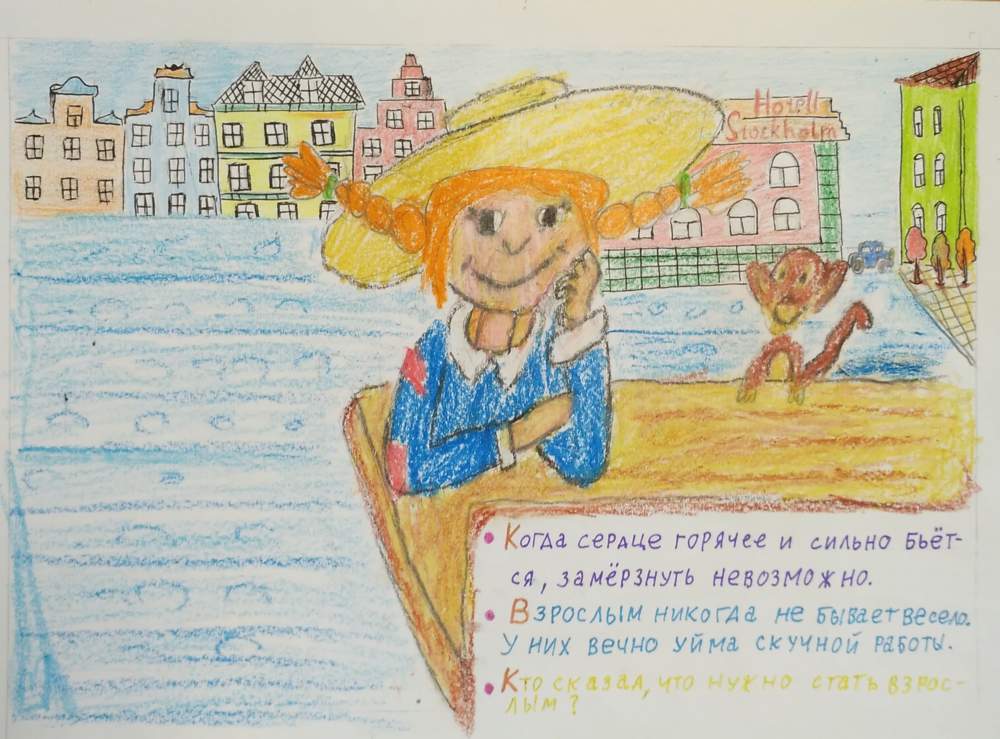 Hotell
Stockholm
• Когда сердце горячее и сильно бьёт-
ся, замёрзнуть невозможно.
• Взрослым никогда не бывает весело.
У них вечно уйма скучной работы.
• Кто сказал, что нужно стать взрос-
лым?